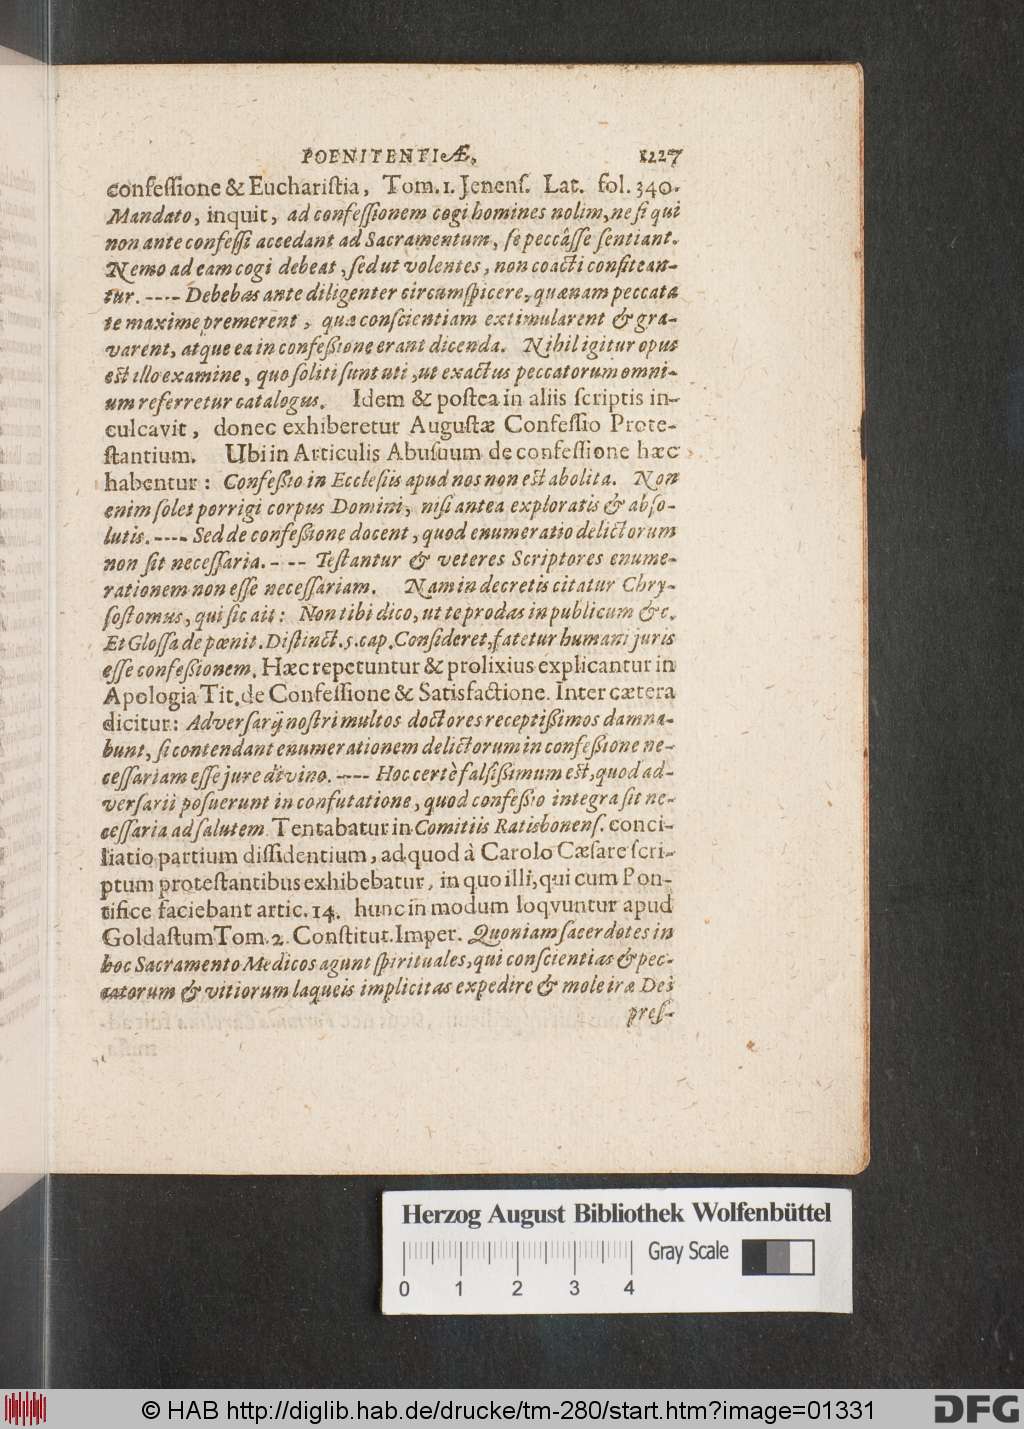 POENITENTIÆ, 1227
confessione & Eucharistia, Tom. 1. Jenens. Lat. fol. 340.
Mandato, inquit, ad confessionem cogi homines nolim, ne si qui
non ante confessi accedant ad Sacramentum, se peccâsse sentiant.
Nemo ad eam cogi debeat, sed ut volentes, non coacti confitean-
tur. ---- Debebas ante diligenter circumspicere, quænam peccata
te maxime premerent, quæ conscientiam extimularent & gra-
varent, atque ea in confeßione erant dicenda. Nihil igitur opus
est illo examine, quo soliti sunt uti, ut exactus peccatorum omni-
um referretur catalogus. Idem & postea in aliis scriptis in-
culcavit, donec exhiberetur Augustæ Confessio Prote-
stantium. Ubi in Articulis Abusuum de confessione hæc
habentur: Confeßio in Ecclesiis apud nos non est abolita. Non
enim solet porrigi corpus Domini, nisi antea exploratis & abso-
lutis. ---- Sed de confeßione docent, quod enumeratio delictorum
non sit necessaria. - -- Testantur & veteres Scriptores enume-
rationem non esse necessariam. Nam in decretis citatur Chry-
sostomus, qui sic ait: Non tibi dico, ut te prodas in publicum &c.
Et Glossa de pœnit. Distinct. 5. cap. Consideret, fatetur humani juris
esse confeßionem. Hæc repetuntur & prolixius explicantur in
Apologia Tit. de Confessione & Satisfactione. Inter cætera
dicitur: Adversarij nostri multos doctores receptißimos damna-
bunt, si contendant enumerationem delictorum in confeßione ne-
cessariam esse jure divino. ---- Hoc certè falsißimum est, quod ad-
versarii posuerunt in confutatione, quod confeßio integra sit ne-
cessaria ad salutem. Tentabatur in Comitiis Ratisbonens. conci-
liatio partium dissidentium, ad quod à Carolo Cæsare scri-
ptum protestantibus exhibebatur, in quo illi, qui cum Pon-
tifice faciebant artic. 14. hunc in modum loqvuntur apud
Goldastum Tom. 2. Constitut. Imper. Quoniam sacerdotes in
hoc Sacramento Medicos agunt spirituales, qui conscientias & pec-
catorum & vitiorum laqueis implicitas expedire & mole iræ Dei
pres-
Herzog August Bibliothek Wolfenbüttel
Gray Scale
0 1 2 3 4
© HAB http://diglib.hab.de/drucke/tm-280/start.htm?image=01331
DFG